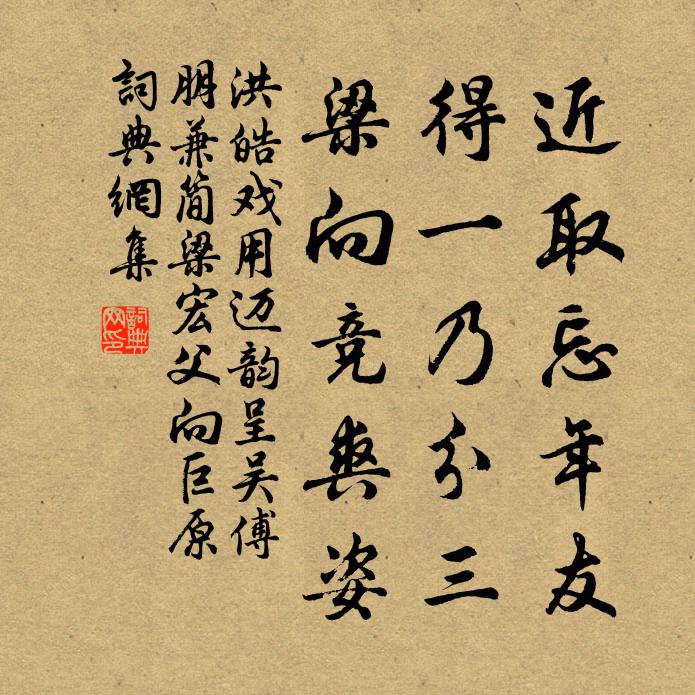 近取忘年友
得一乃分三
梁向竞爽姿
洪皓戏用迈韵呈吴傅
朋兼简梁宏父向巨原
詞典網集
詞典网印